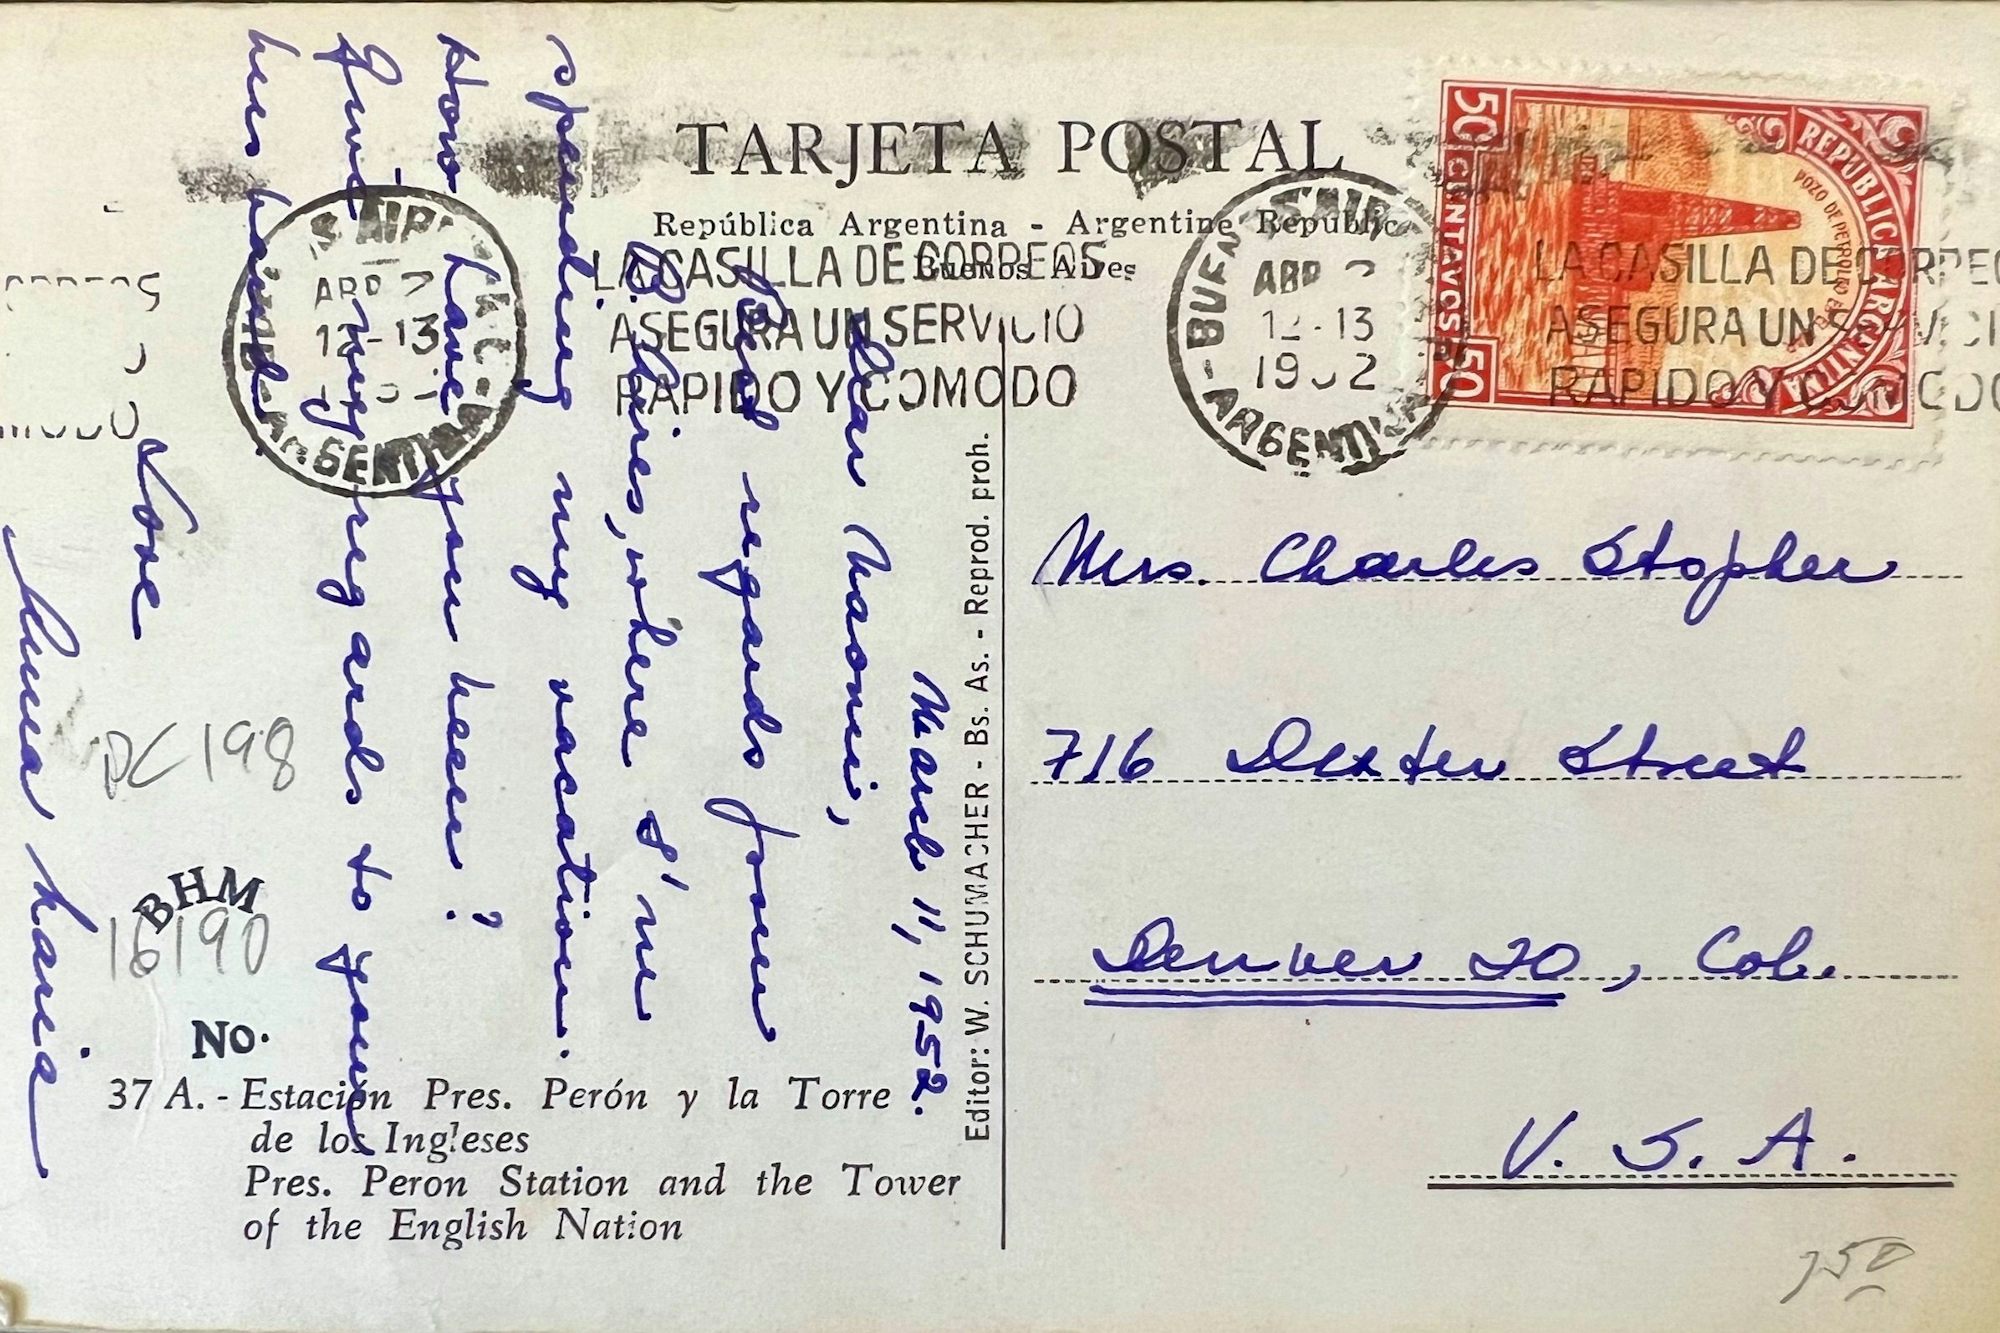 TARJETA POSTAL
República Argentina - Argentine Republic
Buenos Aires
LA CASILLA DE CORREOS
ASEGURA UN SERVICIO
RAPIDO Y COMODO
BUENOS AIRES
ABR
12-13
1952
ARGENTINA
LA CASILLA DE CORREOS
ASEGURA UN SERVICIO
RAPIDO Y COMODO
REPUBLICA ARGENTINA
POZO DE PETROLEO EN EL
50 CENTAVOS 50
March 11, 1952.
Dear Naomi,
Best regards from
B. Aires, where I'm
spending my vacation.
How have you been?
Give my regards to your
husband.
Love
Ana Maria
Mrs. Charles Stopher
716 Dexter Street
Denver 20, Col.
U. S. A.
Editor: W. SCHUMACHER - Bs. As. - Reprod. proh.
DC 198
BHM
16190
No.
37 A. - Estación Pres. Perón y la Torre
de los Ingleses
Pres. Peron Station and the Tower
of the English Nation
750